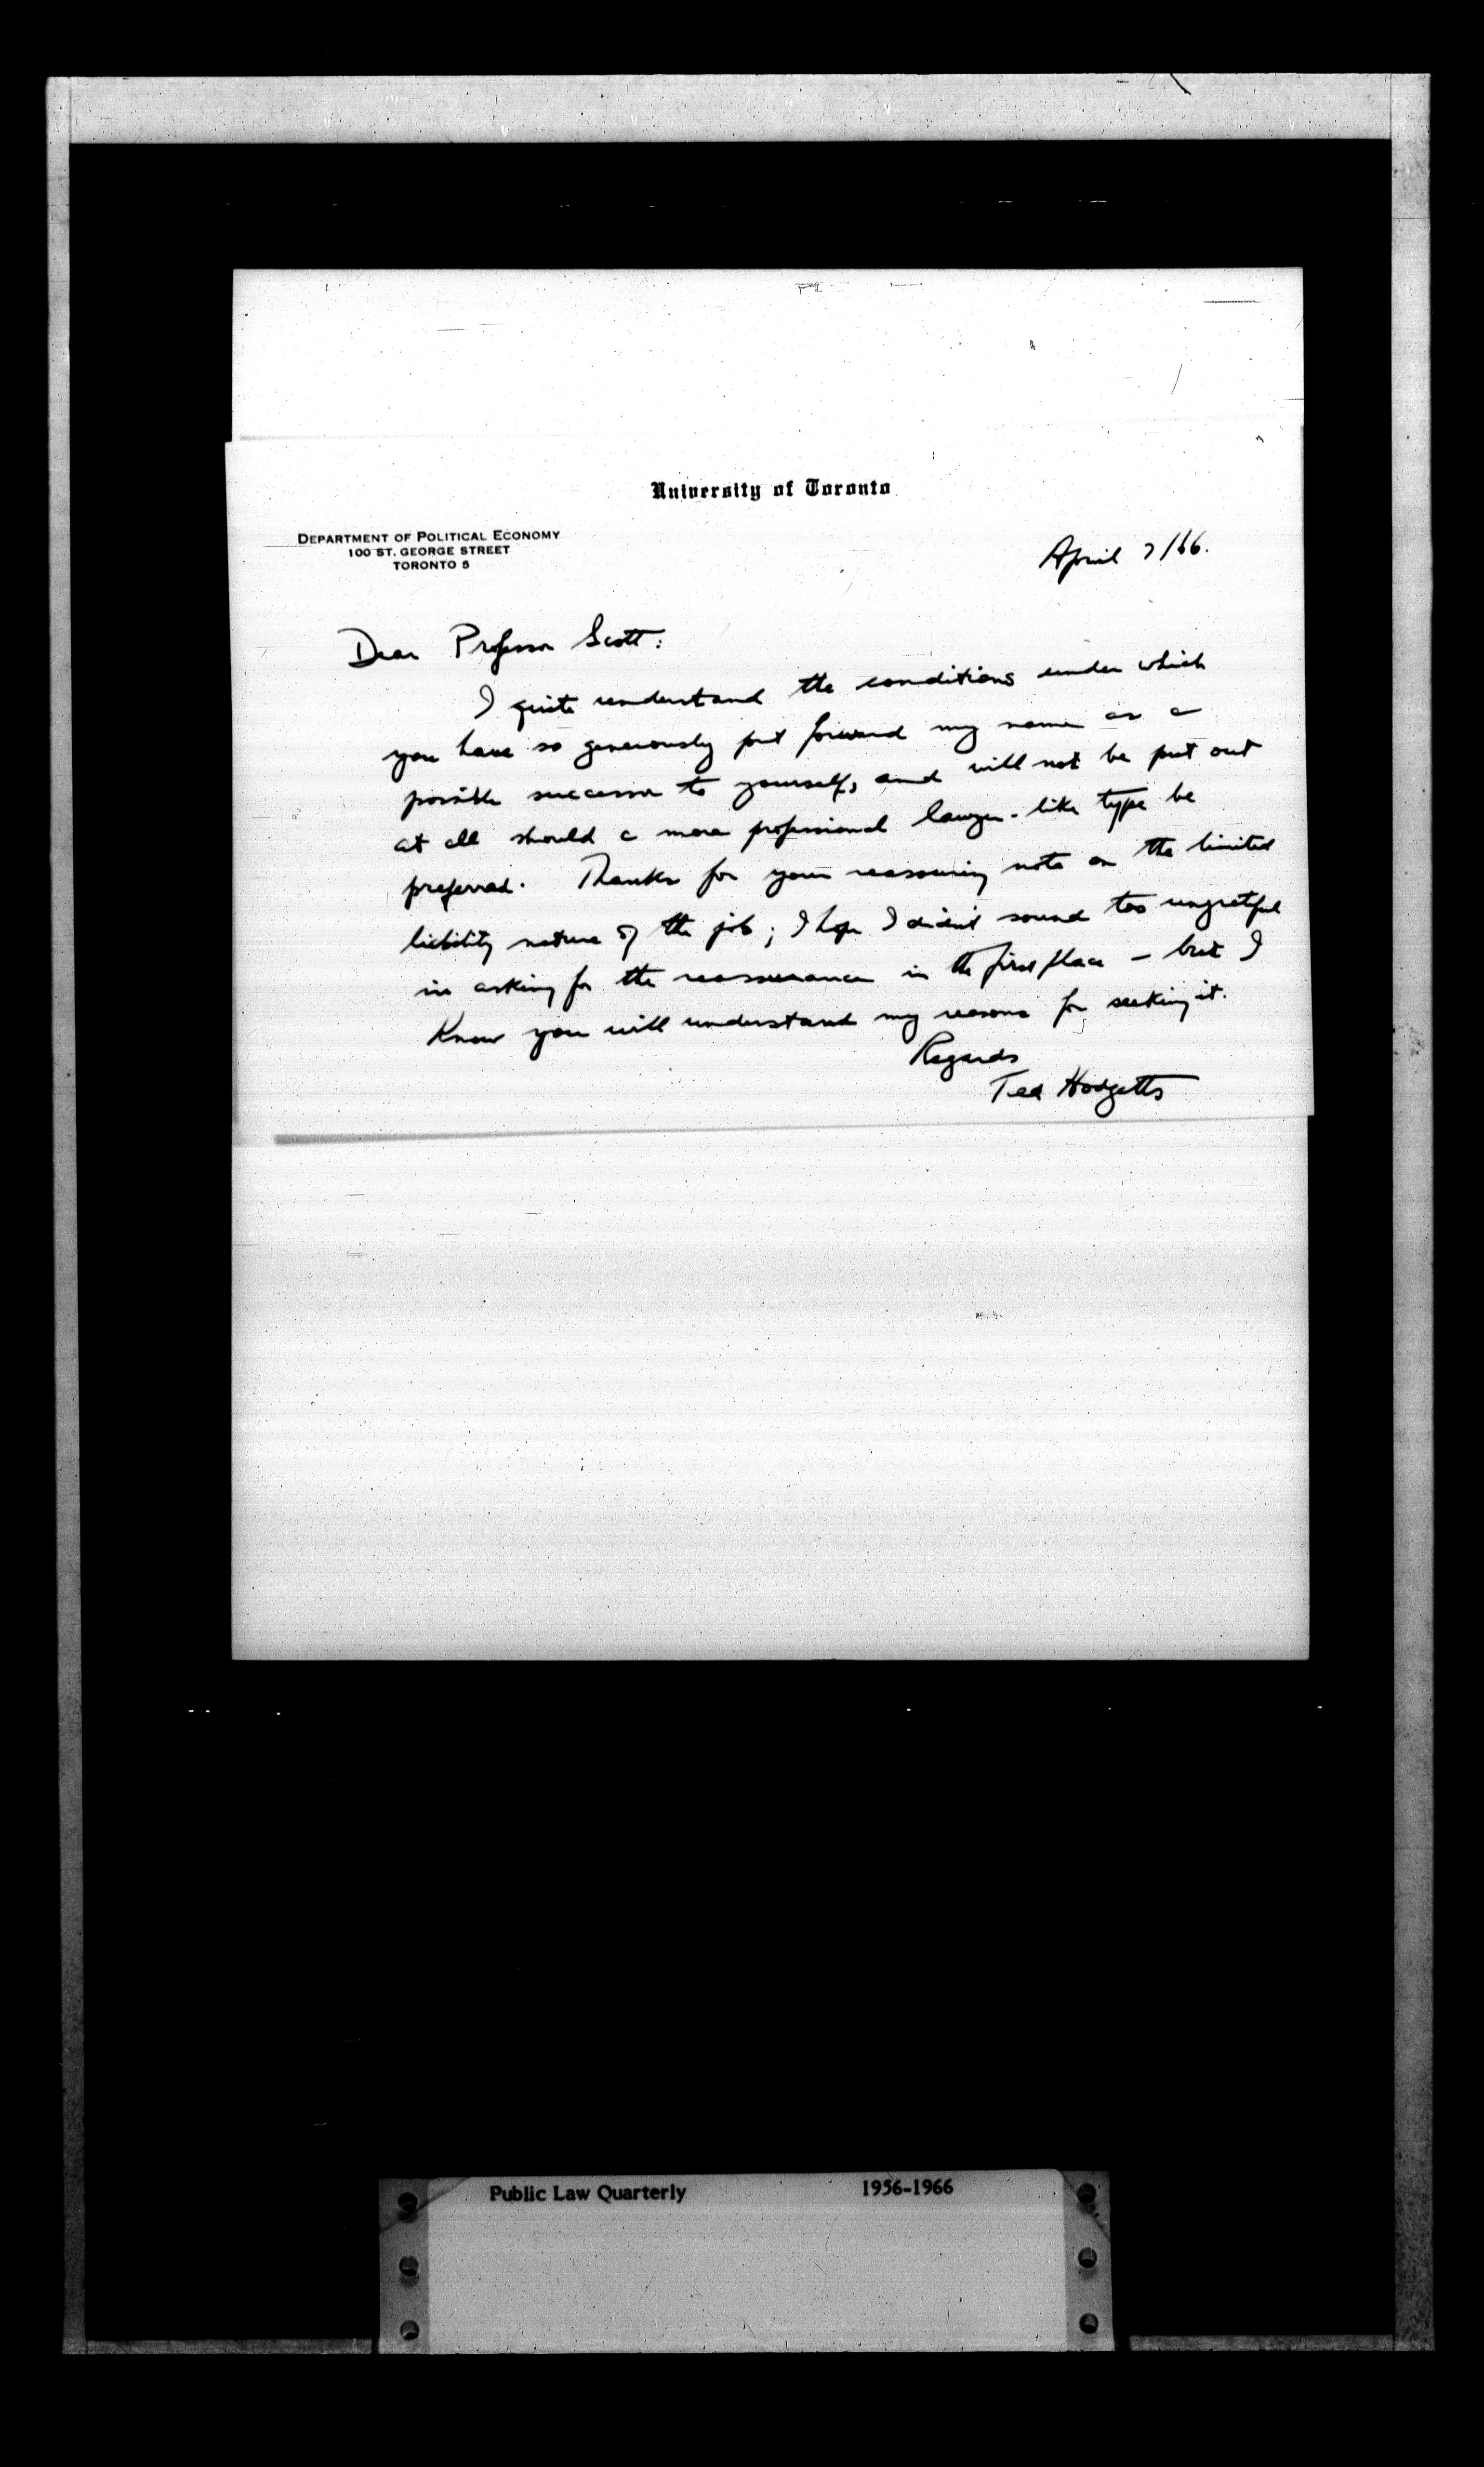 University of Toronto
DEPARTMENT OF POLITICAL ECONOMY
100 ST. GEORGE STREET
TORONTO 5
April 7/66.
Dear Professor Scott:
I quite understand the conditions under which
you have so generously put forward my name as a
possible successor to yourself, and will not be put out
at all should a more professional lawyer-like type be
preferred. Thanks for your reassuring note on the limited
liability nature of the job; I hope I didn't sound too ungrateful
in asking for the reassurance in the first place – but I
know you will understand my reasons for seeking it.
Regards
Ted Hodgetts
Public Law Quarterly 1956-1966